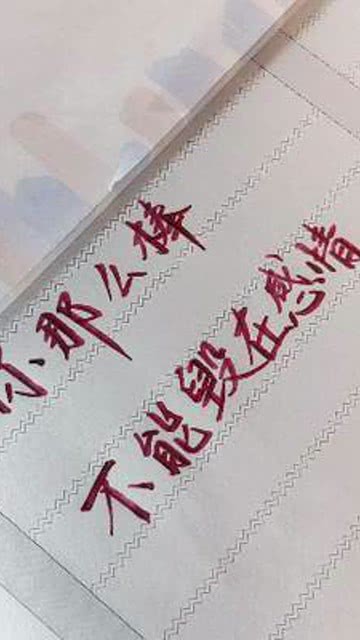 你那么棒
不能毁在感情